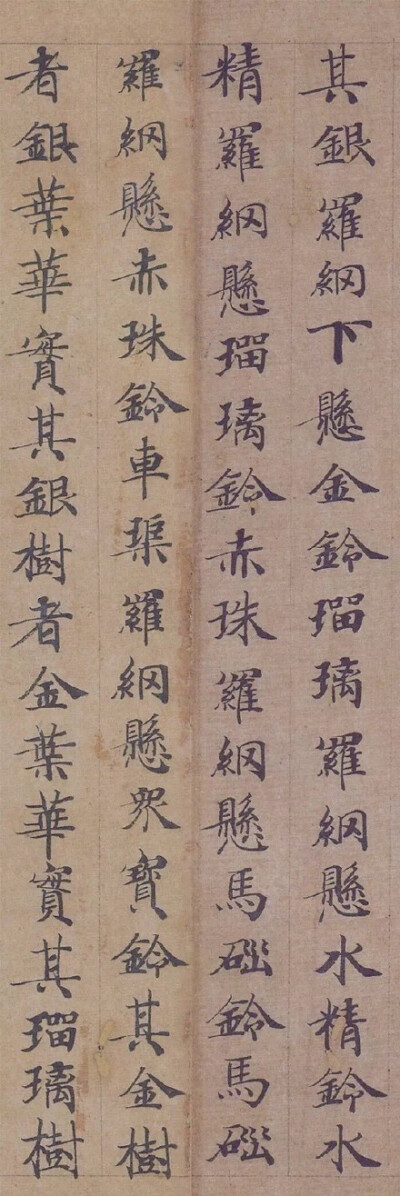 其銀羅網下懸金鈴瑠璃羅網懸水精鈴水
精羅網懸瑠璃鈴赤珠羅網懸馬碯鈴馬碯
羅網懸赤珠鈴車𤦲羅網懸眾寶鈴其金樹
者銀葉華實其銀樹者金葉華寶其瑠璃樹